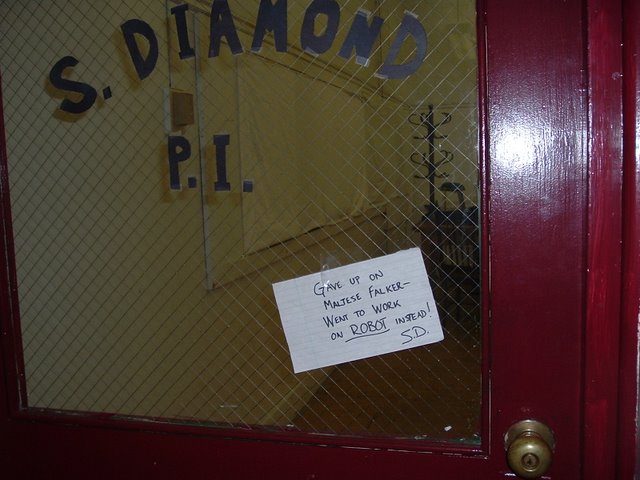 S. DIAMOND
P.I.
GAVE UP ON
MALTESE FALKER—
WENT TO WORK
ON ROBOT INSTEAD!
S.D.